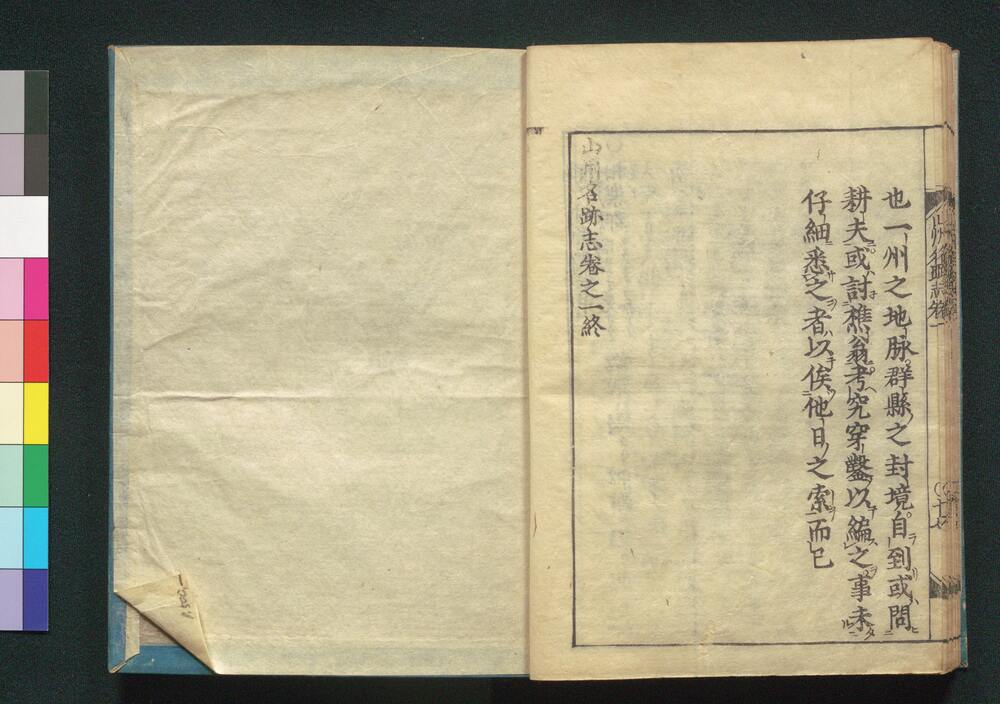 也一州之地脉群縣之封境自到或問
耕夫或討樵翁考究穿鑿以編之事未
仔細悉之者以俟他日之索而已
山州名跡志卷之一終